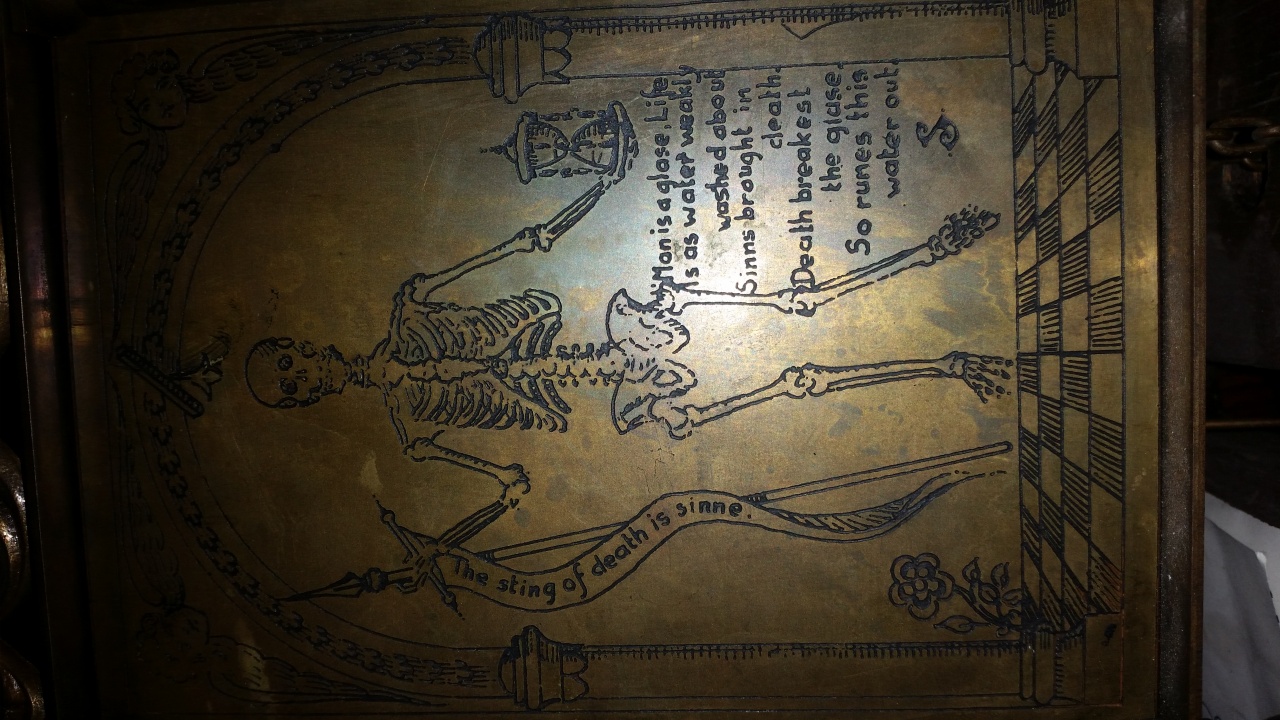 The sting of death is sinne.
Man is a glase, Life
is as water weakly
washed about
Sinns brought in
death.
Death breakest
the glase.
So runes this
water out.